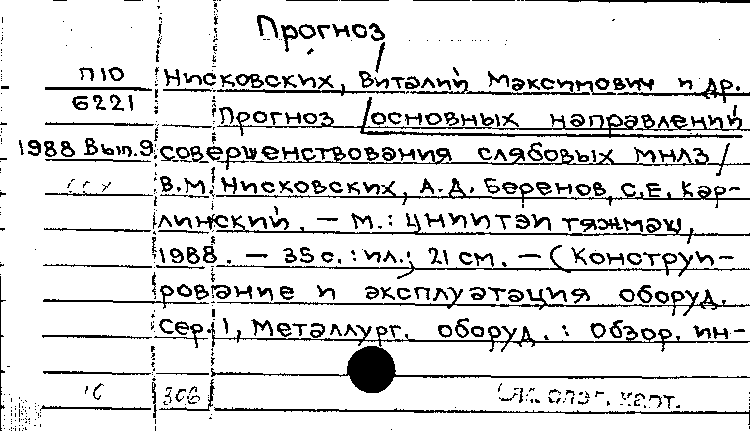 Прогноз
П10 Нисковских, Виталий Максимович и др.
6221 Прогноз основных направлений
1988 Вып.9 совершенствования слябовых МНЛЗ /
В.М. Нисковских, А.Д. Беренов, С.Е. Кар-
линский. — М.: ЦНИИТЭИтяжмаш,
1988. — 35 с.: ил.; 21 см. — (Конструи-
рование и эксплуатация оборуд.
Сер. 1, Металлург. оборуд.: Обзор. ин-
306 след. карт.